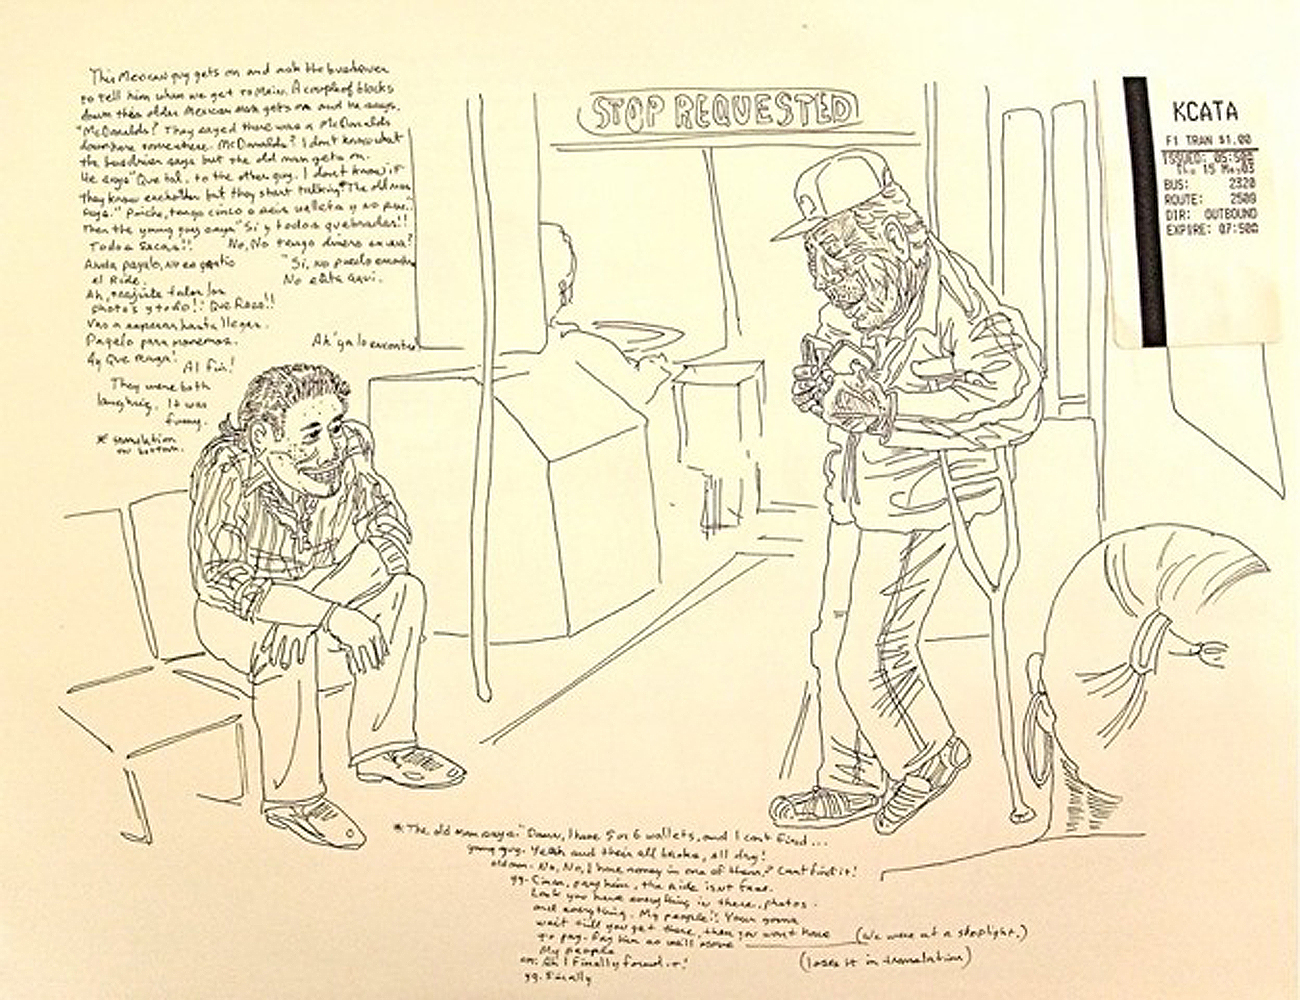 This Mexican guy gets on and ask the busdriver
to tell him when we get to Main. A couple of blocks
down this older Mexican man gets on and he says,
"McDonalds? They sayed there was a McDonalds
down here somewhere. McDonalds? I don't know what
the busdriver says but the old man gets on.
He says "Que tal, to the other guy. I don't know if
they know eachother but they start talking* The old man
says." Pinche, tengo cinco o seis walleta y no
Then the young guy says" Si y todos quebradas!!
Todos Secas!! No, No tengo dinero en una?
Anda pagalo, no es gratis "Si, no puedo encontrar
el Ride. No esta aqui.
Ah,
photos y todo!! Que Raza!!
Vas a esperar hasta llegar.
Pagelo para movernos. Ah ya lo encontre!
Ay Que Raza! Al fin!
They were both
laughing. It was
funny.
* translation
on bottom.
STOP REQUESTED
KCATA
F1 TRAN $1.00
ISSUED: 05:50
15 03
BUS: 2320
ROUTE: 2509
DIR: OUTBOUND
EXPIRE: 07:50
*The old man says." Damn, I have 5 or 6 wallets, and I cant find...
young guy. Yeah and their all broke, all dry!
old man. No, No, I have money in one of them? Cant find it!
yg. Cmon, pay him, the ride isnt free.
Look you have everything in there, photos.
and everything. My people!! Your gonna
wait till you get there, then you wont have
to pay. Pay him so we'll move (We were at a stoplight.)
My people (loses it in translation)
om. Ah I Finally found it!
yg. Finally